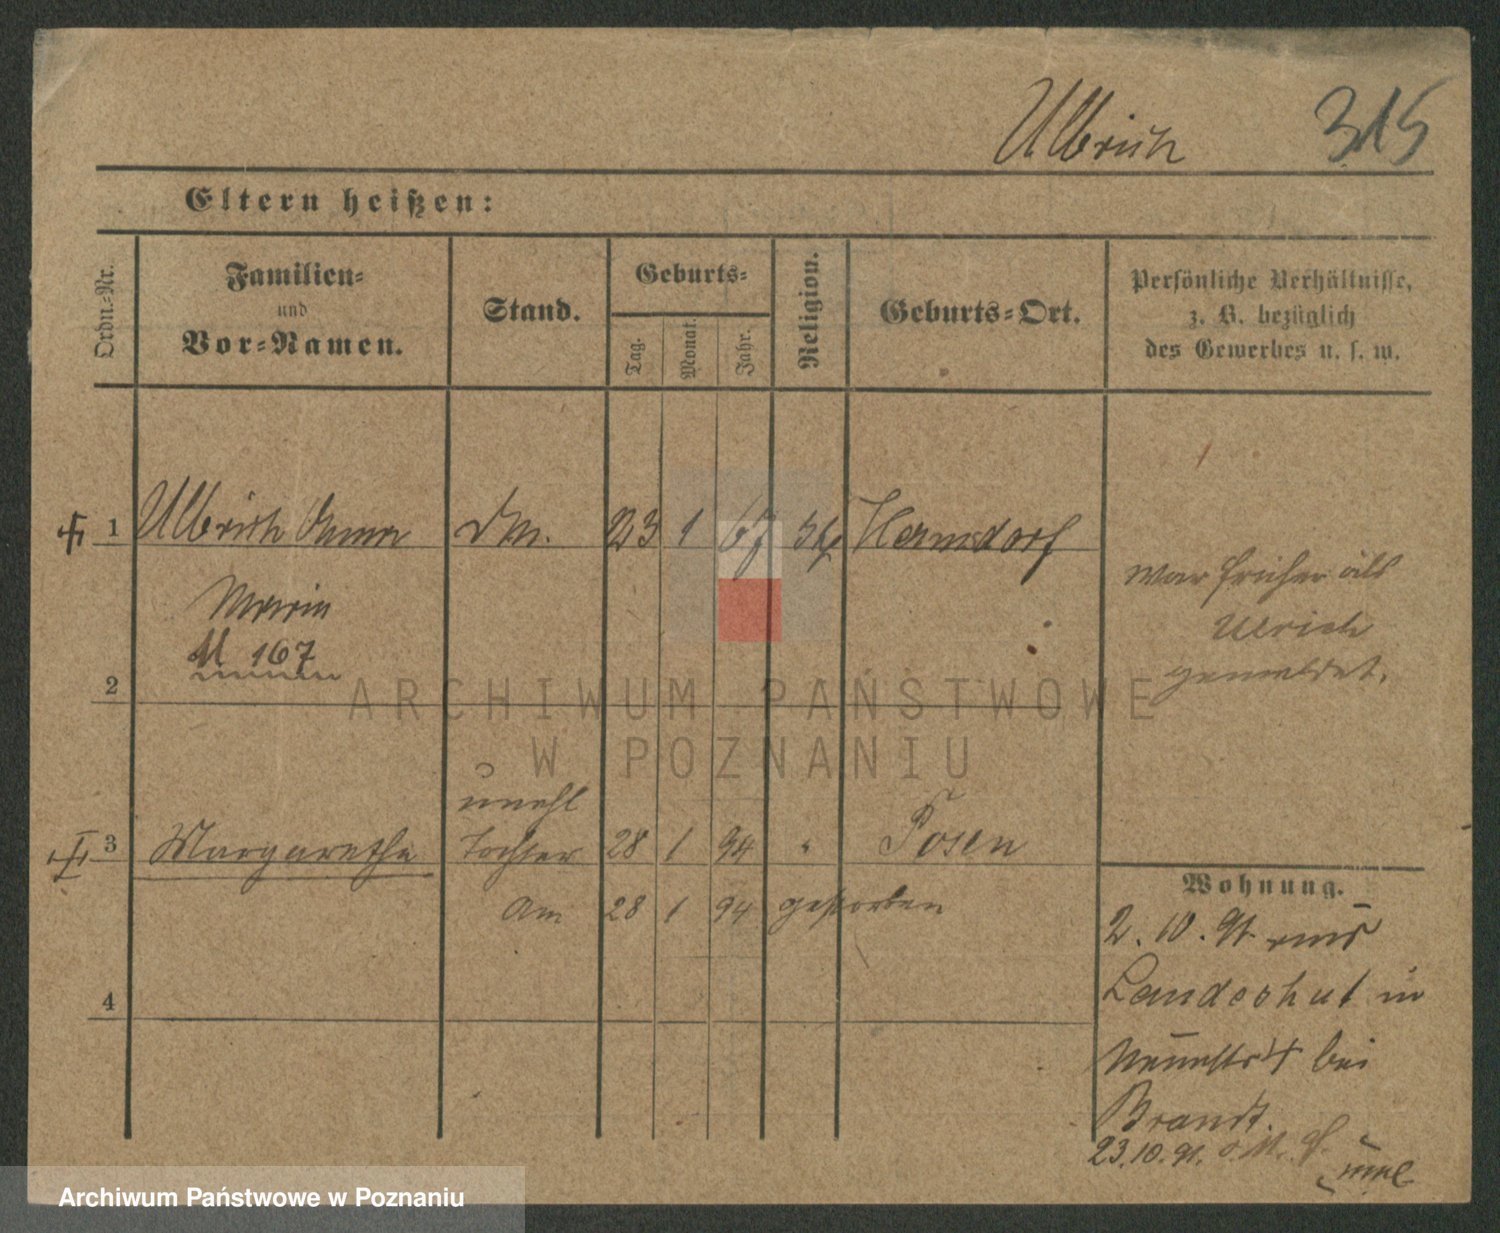 Ulbrich 315
Eltern heißen:
Ordn.-Nr.
Familien-
und
Vor-Namen.
Stand.
Geburts-
Tag.
Monat.
Jahr.
Religion.
Geburts-Ort.
Persönliche Verhältnisse,
z. B. bezüglich
des Gewerbes u. s. w.
1 Ulbrich Anna 23 1 67 Hermsdorf
Maria
M 167
war früher als
Ulrich
gemeldet.
2
ARCHIWUM PAŃSTWOWE
W POZNANIU
unehl
3 Margarethe Tochter 28 1 94 " Posen
am 28 1 94 gestorben
Wohnung.
2. 10. 91 aus
Landeshut in
4
bei
Brandt.
23.10.91.
Archiwum Państwowe w Poznaniu